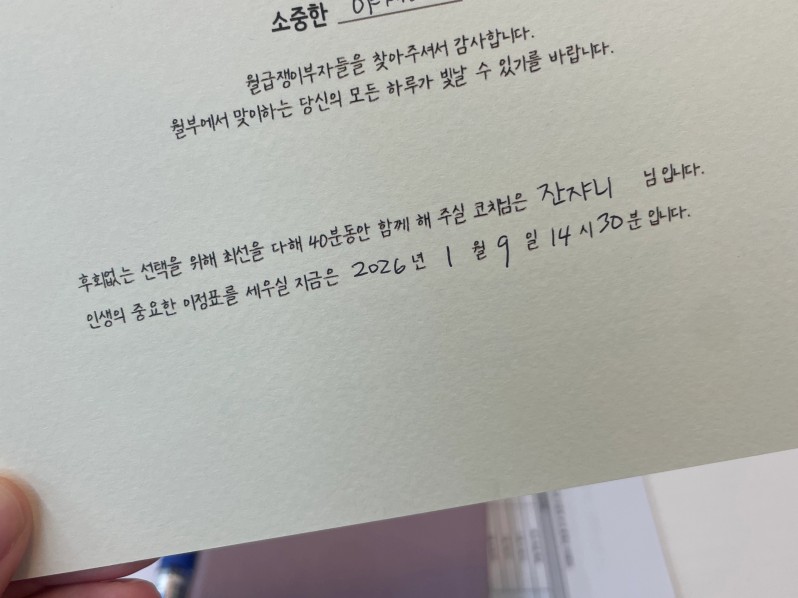 소중한
월급쟁이부자들을 찾아주셔서 감사합니다.
월부에서 맞이하는 당신의 모든 하루가 빛날 수 있기를 바랍니다.
후회없는 선택을 위해 최선을 다해 40분동안 함께 해 주실 코치님은 잔쟈니 님 입니다.
인생의 중요한 이정표를 세우실 지금은 2026 년 1 월 9 일 14 시 30 분 입니다.